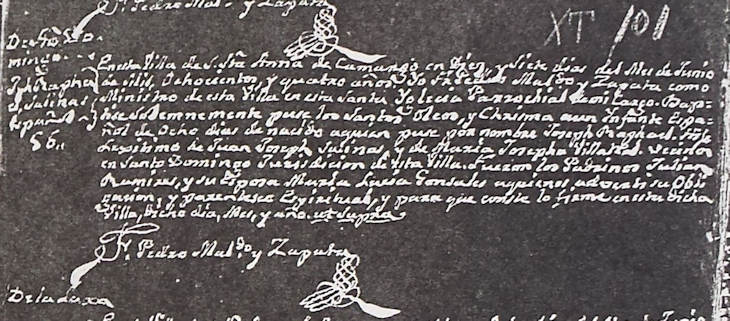 Fr. Pedro Maldo. y Zapata
XT 101
De Sto. Do
mingo
Jph. Raphael
Salinas
Español
56.,
En esta Villa de S. Sta. Anna de Camargo en diez, y Siete dias del Mes de Junio
de mil, Ochocientos, y quatro años Yo Fr. Pedro Maldo. y Zapata como
Ministro de esta Villa en esta Santa Yglecia Parrochial de mi Cargo Bap-
tisè Solemnemente puse los Santos Oleos, y Chrisma a un Infante Espa-
ñol de Ocho dias de nacido a quien puse por nombre Joseph Raphael. Injo
Legitimo de Juan Joseph Salinas, y de Maria Josepha Villareal. vecinos
en Santo Domingo Jurisdicion de esta Villa. fueron los Padrinos Julian
Ramires, y su Esposa Maria Luisa Gonsales a quienes advertì su Obli
gacion, y parentesco Espiritual, y para que conste lo firmè en esta dicha
Villa, dicho dia, Mes, y año. ut supra
Fr. Pedro Maldo. y Zapata
De la